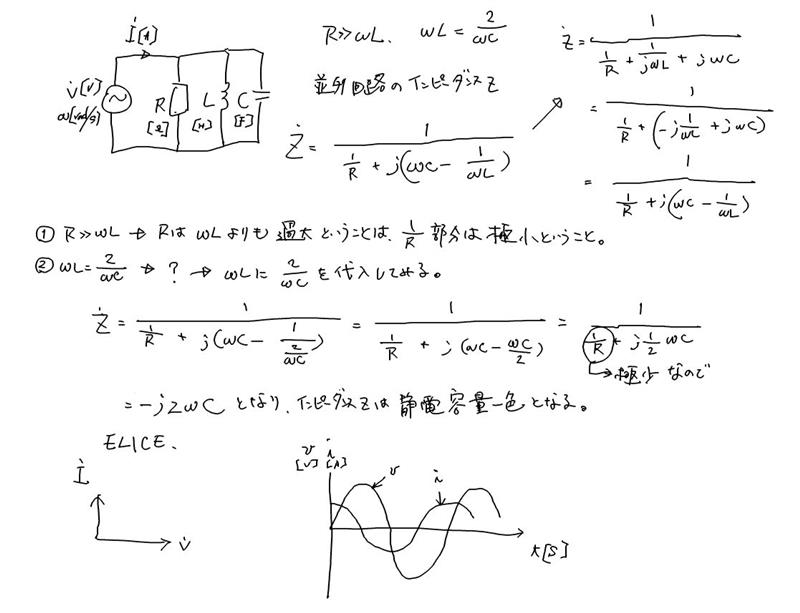 İ[A]
V̇[V]
ω[rad/s]
R
[Ω]
L
[H]
C
[F]
R≫ωL、 ωL = 2/ωC
並列回路のインピーダンスZ
Ż = 1/(1/R + j(ωC − 1/ωL))
Ż = 1/(1/R + 1/jωL + jωC)
= 1/(1/R + (−j1/ωL + jωC))
= 1/(1/R + j(ωC − 1/ωL))
① R≫ωL → RはωLよりも過大ということは、1/R部分は極小ということ。
② ωL=2/ωC → ? → ωLに2/ωCを代入してみる。
Ż = 1/(1/R + j(ωC − 1/(2/ωC))) = 1/(1/R + j(ωC − ωC/2)) = 1/(1/R + j1/2ωC)
→極少なので
= −j2ωC となり、インピーダンスZは静電容量一色となる。
ELICE.
İ
V̇
v i
[V] [A]
v
i
t[S]